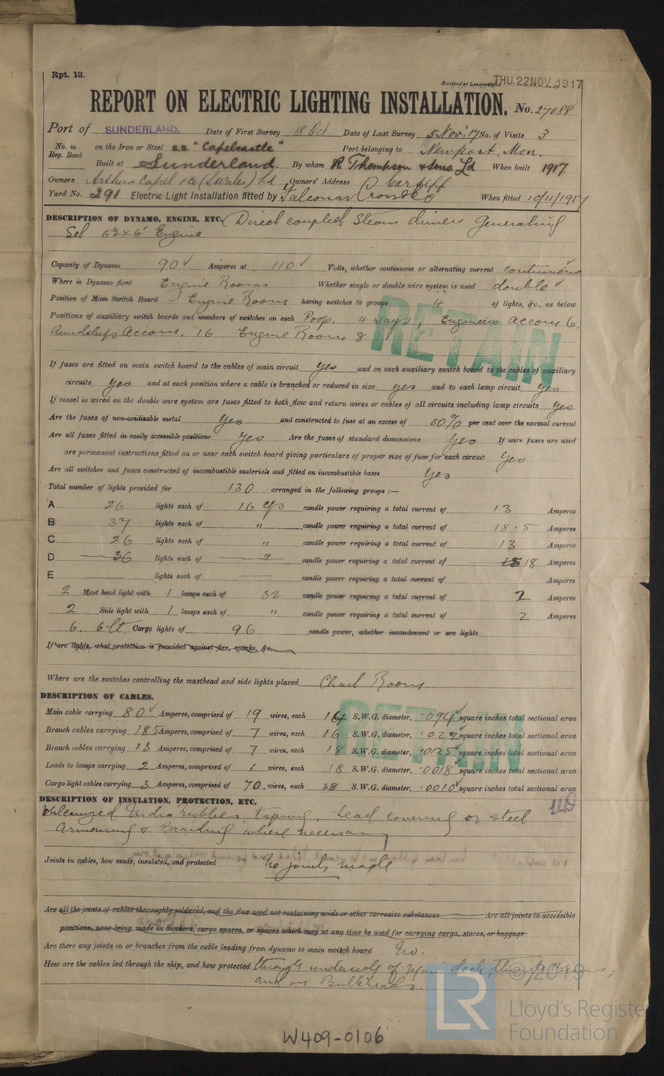 Rpt. 13.
THU. 22 NOV. 1917
REPORT ON ELECTRIC LIGHTING INSTALLATION. No. 27088
Port of SUNDERLAND. Date of First Survey 18 Oct Date of Last Survey 5 Nov 17 No. of Visits 3
No. in Reg. Book on the Iron or Steel s.s. "Capelcastle" Port belonging to Newport, Mon.
Built at Sunderland By whom R Thompson & Sons Ld When built 1917
Owners Arthur Capel & Co (Sunderland) Ld Owners' Address Cardiff
Yard No. 291 Electric Light Installation fitted by Falconar Cross & Co When fitted 10/11/1917
DESCRIPTION OF DYNAMO, ENGINE, ETC. Direct coupled Steam driven Generating
Set 6½ x 6 Engine
Capacity of Dynamo 90 Amperes at 110 Volts, whether continuous or alternating current continuous
Where is Dynamo fixed Engine Room Whether single or double wire system is used double
Position of Main Switch Board Engine Room having switches to groups 4 of lights, &c., as below
Positions of auxiliary switch boards and numbers of switches on each Poop, 4 ways, Engineers Accom 6,
Amidships Accom. 16 Engine Room 8
RETAIN
If fuses are fitted on main switch board to the cables of main circuit Yes and on each auxiliary switch board to the cables of auxiliary
circuits Yes and at each position where a cable is branched or reduced in size yes and to each lamp circuit Yes
If vessel is wired on the double wire system are fuses fitted to both flow and return wires or cables of all circuits including lamp circuits Yes
Are the fuses of non-oxidizable metal Yes and constructed to fuse at an excess of 50% per cent over the normal current
Are all fuses fitted in easily accessible positions Yes Are the fuses of standard dimensions Yes If wire fuses are used
are permanent instructions fitted on or near each switch board giving particulars of proper size of fuse for each circuit Yes
Are all switches and fuses constructed of incombustible materials and fitted on incombustible bases Yes
Total number of lights provided for 130 arranged in the following groups :—
A 26 lights each of 16 c/p candle power requiring a total current of 13 Amperes
B 37 lights each of " candle power requiring a total current of 18.5 Amperes
C 26 lights each of " candle power requiring a total current of 13 Amperes
D 36 lights each of " candle power requiring a total current of 18 Amperes
E lights each of candle power requiring a total current of Amperes
2 Mast head light with 1 lamps each of 32 candle power requiring a total current of 2 Amperes
2 Side light with 1 lamps each of " candle power requiring a total current of 2 Amperes
6. 6 lt. Cargo lights of 96 candle power, whether incandescent or arc lights
If arc lights, what protection is provided against fire, sparks, &c.
Where are the switches controlling the masthead and side lights placed Chart Room
DESCRIPTION OF CABLES.
Main cable carrying 80 Amperes, comprised of 19 wires, each 14 S.W.G. diameter, .094 square inches total sectional area
Branch cables carrying 18.5 Amperes, comprised of 7 wires, each 16 S.W.G. diameter, .022 square inches total sectional area
Branch cables carrying 13 Amperes, comprised of 7 wires, each 18 S.W.G. diameter, .0125 square inches total sectional area
Leads to lamps carrying 2 Amperes, comprised of 1 wires, each 18 S.W.G. diameter, .0018 square inches total sectional area
Cargo light cables carrying 3 Amperes, comprised of 70 wires, each 38 S.W.G. diameter, .0010 square inches total sectional area
RETAIN
DESCRIPTION OF INSULATION, PROTECTION, ETC.
Vulcanized India rubber, Taping, Lead covering or steel
Armouring & Braiding where necessary
Joints in cables, how made, insulated, and protected No joints made
Are all the joints of cables thoroughly soldered, and the flux used not containing acids or other corrosive substances Are all joints in accessible
positions, none being made in bunkers, cargo spaces, or spaces which may at any time be used for carrying cargo, stores, or baggage
Are there any joints in or branches from the cable leading from dynamo to main switch board No.
How are the cables led through the ship, and how protected through underside of main deck, through
and on Bulkheads.
© 2019
LR Lloyd's Register
Foundation
W409-0106